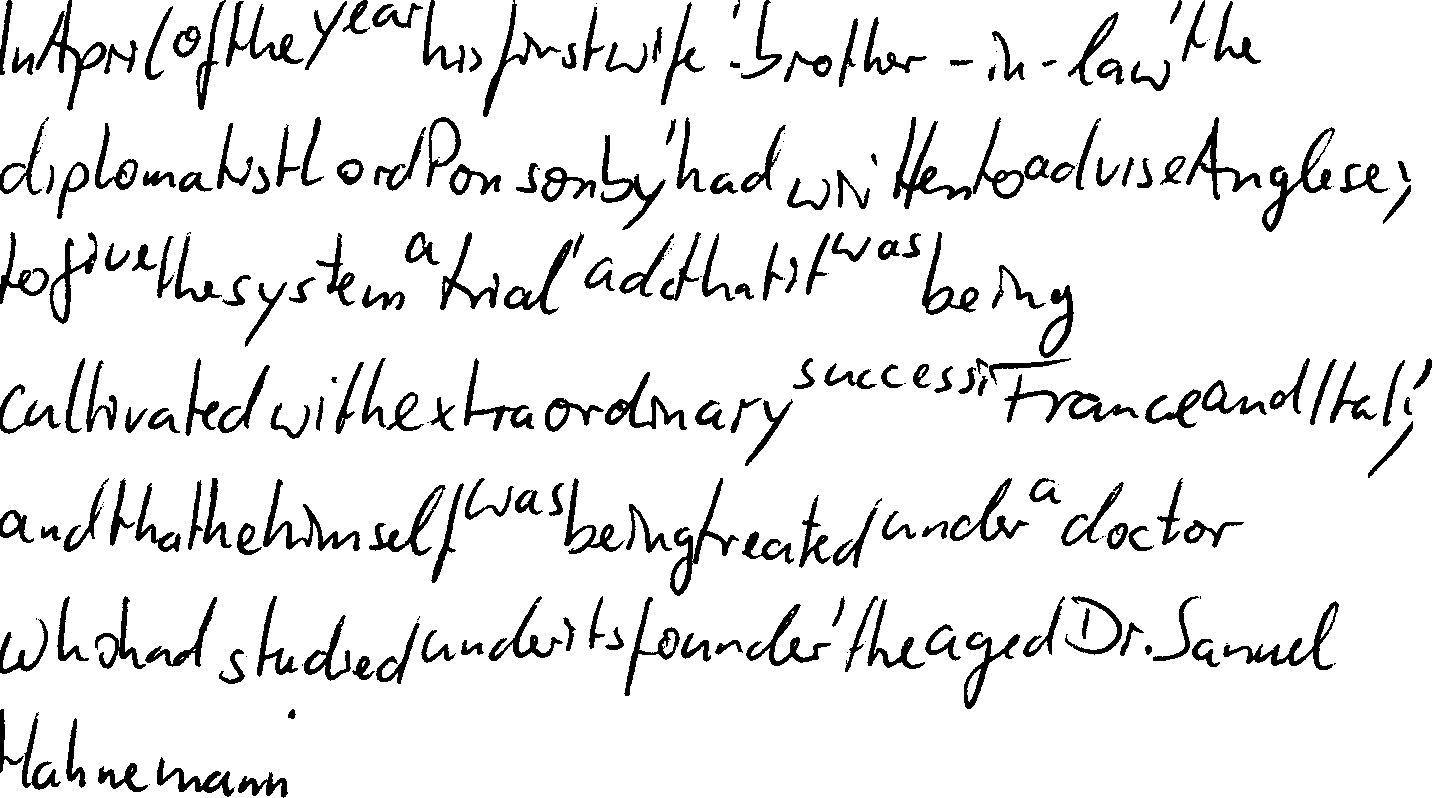 In April of the year his first wife's brother-in-law, the
diplomatist Lord Ponsonby, had written to advise Anglesey
to give the system a trial, add that it was being
cultivated with extraordinary success in France and Italy,
and that he himself was being treated under a doctor
who had studied under its founder, the aged Dr. Samuel
Hahnemann.